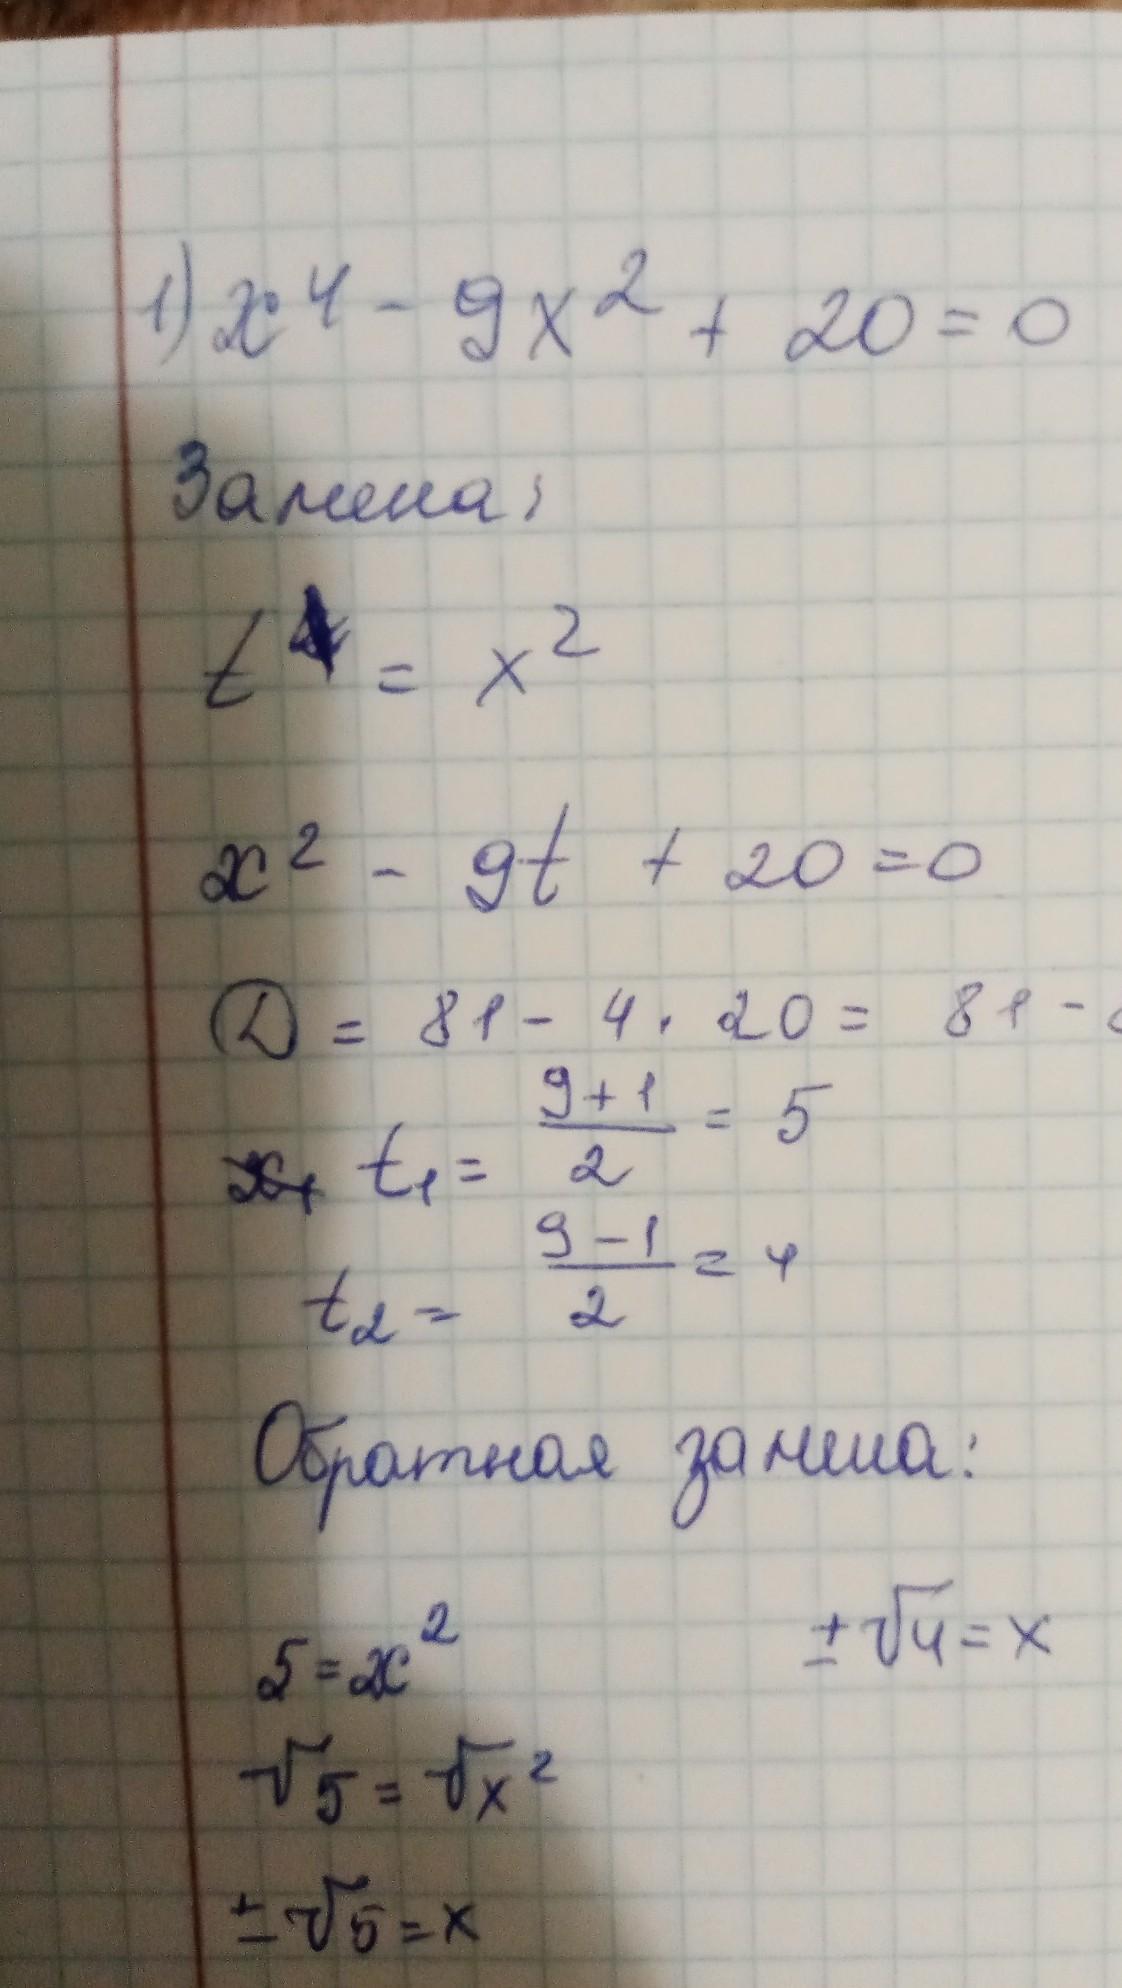 1) x⁴ - 9x² + 20 = 0
Замена:
t = x²
x² - 9t + 20 = 0
D = 81 - 4 · 20 = 81 -
t₁ = (9+1)/2 = 5
t₂ = (9-1)/2 = 4
Обратная замена:
5 = x²
±√4 = x
√5 = √x²
±√5 = x